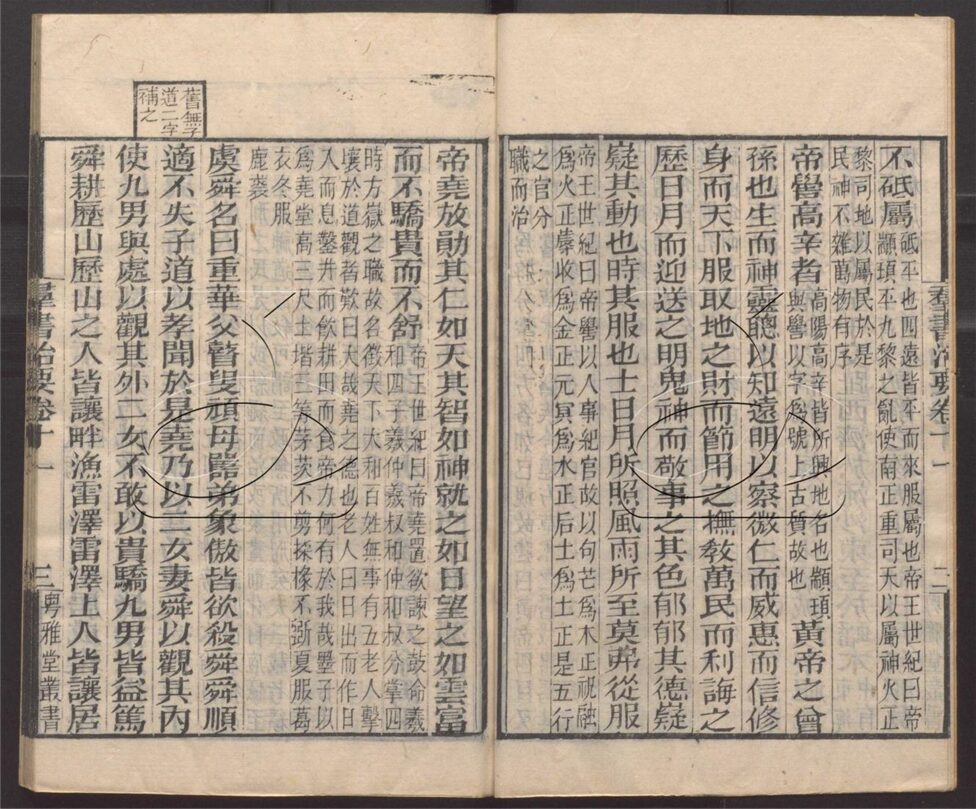 不砥屬
砥平也四遠皆平而來服屬也帝王世紀曰帝
顓頊平九黎之亂使南正重司天以屬神火正
黎司地以屬民於是
民神不雜萬物有序
帝嚳高辛者
高陽高辛皆所興地名也顓頊
與嚳以字爲號上古質故也
黃帝之曾
孫也生而神靈聰以知遠明以察微仁而威惠而信修
身而天下服取地之財而節用之撫教萬民而利誨之
歷日月而迎送之明鬼神而敬事之其色郁郁其德嶷
嶷其動也時其服也士日月所照風雨所至莫弗從服
帝王世紀曰帝嚳以人事紀官故以句芒爲木正祝融
爲火正蓐收爲金正元冥爲水正后土爲土正是五行
之官分
職而治
羣書治要卷十一
二
舊無子
道二字
補之
帝堯放勛其仁如天其智如神就之如日望之如雲富
而不驕貴而不舒
帝王世紀曰帝堯置欲諫之鼓命羲
和四子羲仲羲叔和仲和叔分掌四
時方嶽之職故名徵天下大和百姓無事有五老人擊
壤於道觀者歎曰大哉堯之德也老人曰日出而作日
入而息鑿井而飲耕田而食帝力何有於我哉墨子以
爲堯堂高三尺土堦三等茅茨不剪採椽不斲夏服葛
衣冬服
鹿裘
虞舜名曰重華父瞽叟頑母嚚弟象傲皆欲殺舜舜順
適不失子道以孝聞於是堯乃以二女妻舜以觀其內
使九男與處以觀其外二女不敢以貴驕九男皆益篤
舜耕歷山歷山之人皆讓畔漁雷澤雷澤上人皆讓居
羣書治要卷十一
三
粵雅堂叢書